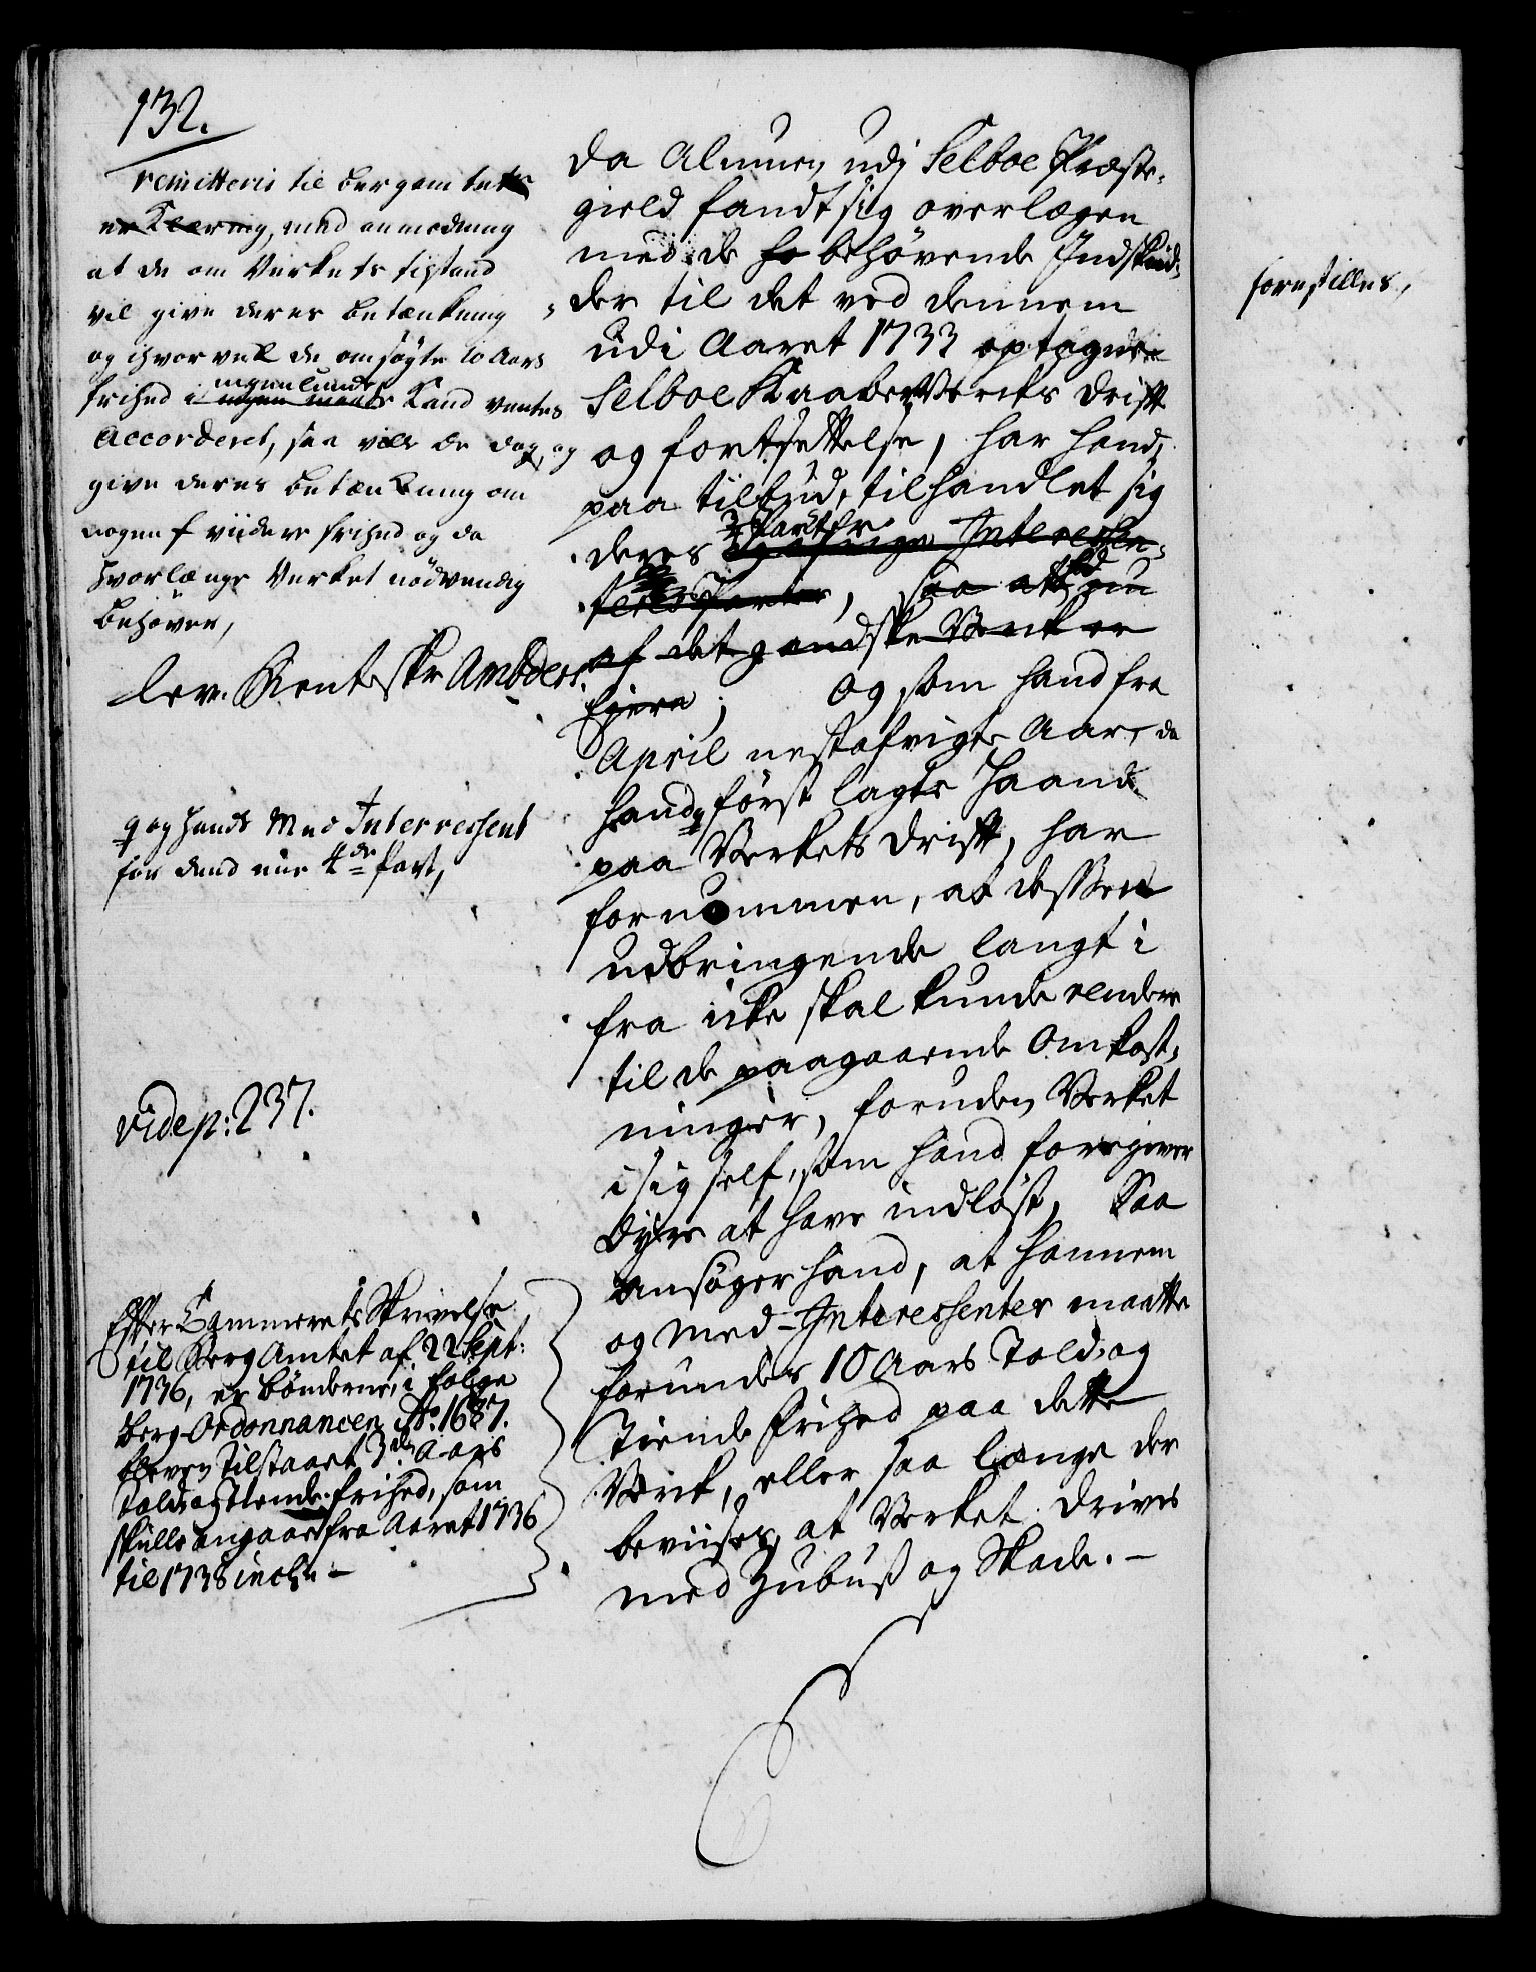 132.
remitteris til bergamtets
erKlæring, med anmodning
at de om Verkets tilstand
vil give deres betænkning
og ihvorvel de omsøgte 10 Aars
ingenlunde
frihed i ingen maade Kand ventes
Accorderet, saa ville de dog, og
give deres betænkning om
nogen viidere frihed og da
hvorlænge Verket nödvendig
behöver,
lev. Renteskr Ambders.
og hands Med Interressent
for dend eene 4de part,
vide p: 237.
Efter Cammerets Skrivelse
til BergAmtet af 22 Sept:
1736, er bönderne, i følge
Berg-Ordonnancen Ao. 1687.
tilstaaet 3de Aars
Told og tiende frihed, som
skulle angaae fra Aaret 1736
til 1738 incl. –
da Almuen udj Selboe Præste-
gield fandt sig overlægen
med de behövende Indskud-
der til det ved dennem
udi Aaret 1733 optagne
Selboe Kaaber Werks drift
og fortsettelse, har hand,
paa tilbud, tilhandlet sig
3 Parter
deres Interessen-
ters Parter, saa at nu
af det gandske Verk er
Ejere; Og som hand fra
April nestafvigte Aar, da
hand først lagde Haand
paa Verkets drift, har
fornommen, at dessen
udbringende langt i
fra icke skal kunde rendere
til de paagaaende Omkost-
ninger, foruden Verket
i sig self, som hand foregiver
dyre at have indløst, Saa
ansøger hand, at hannem
og Med-Interessenter maatte
forundes 10 Aars Told og
Tiende Frihed paa dette
Verk, eller saa længe det
beviises, at Verket drives
med Zubuss og Skade. –
forestilles,